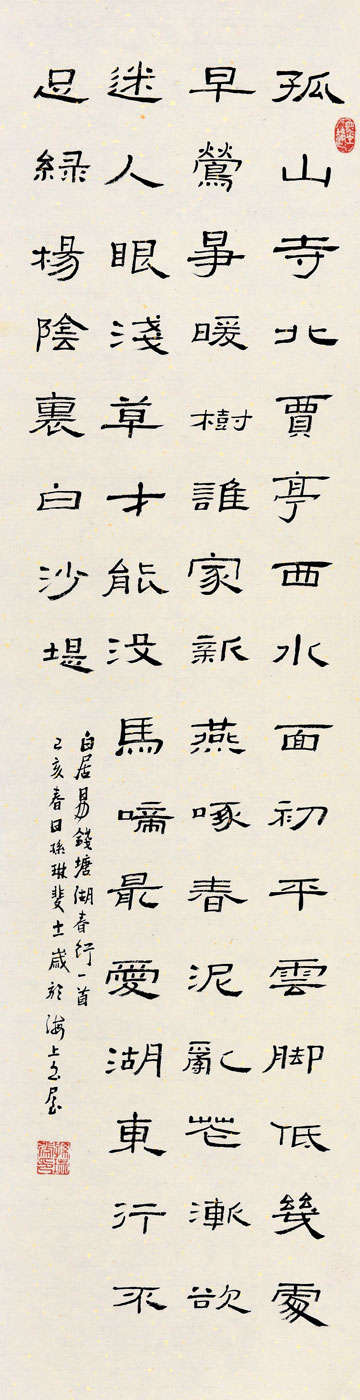 孤山寺北賈亭西水面初平雲脚低幾處
早鶯爭暖樹誰家新燕啄春泥亂花漸欲
迷人眼淺草才能沒馬蹄最愛湖東行不
足綠楊陰裏白沙堤
白居易錢塘湖春行一首
己亥春日孫琳斐十一歲於海上